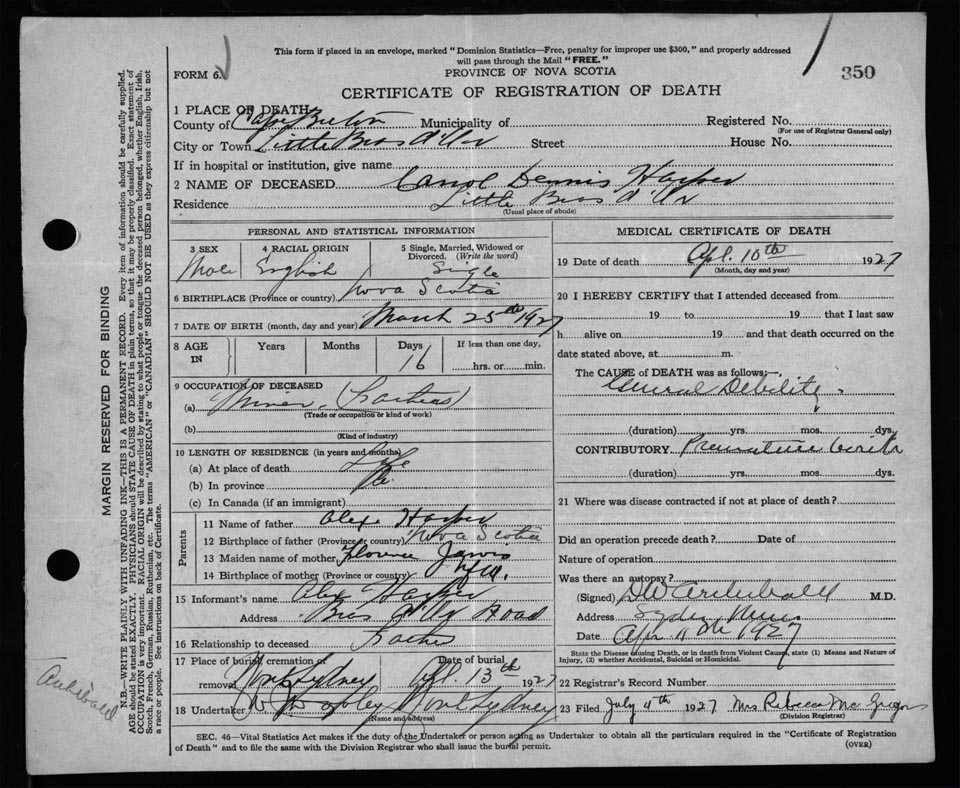 This form if placed in an envelope, marked "Dominion Statistics—Free, penalty for improper use $300," and properly addressed
will pass through the Mail "FREE."
FORM 6.
PROVINCE OF NOVA SCOTIA
350
CERTIFICATE OF REGISTRATION OF DEATH
1 PLACE OF DEATH
County of Cape Breton Municipality of Registered No.
(For use of Registrar General only)
City or Town Little Bras d'Or Street House No.
If in hospital or institution, give name
2 NAME OF DECEASED Carol Dennis Harper
Residence Little Bras d'Or
(Usual place of abode)
PERSONAL AND STATISTICAL INFORMATION
3 SEX 4 RACIAL ORIGIN 5 Single, Married, Widowed or
Divorced. (Write the word)
Male English Single
6 BIRTHPLACE (Province or country) Nova Scotia
7 DATE OF BIRTH (month, day and year) March 25th 1927
8 AGE IN Years Months Days If less than one day,
16 hrs. or min.
9 OCCUPATION OF DECEASED
(a) Miner (Father's)
(Trade or occupation or kind of work)
(b)
(Kind of industry)
10 LENGTH OF RESIDENCE (in years and months)
(a) At place of death Life
(b) In province
(c) In Canada (if an immigrant)
Parents
11 Name of father Alex Harper
12 Birthplace of father (Province or country) Nova Scotia
13 Maiden name of mother Florence
14 Birthplace of mother (Province or country) Nfld.
15 Informant's name Alex Harper
Address Bras d'Or Road
16 Relationship to deceased Father
17 Place of burial, cremation or Date of burial
removal North Sydney Apl. 13th 1927
18 Undertaker North Sydney
(Name and address)
MEDICAL CERTIFICATE OF DEATH
19 Date of death Apl. 10th 1927
(Month, day and year)
20 I HEREBY CERTIFY that I attended deceased from
19 to 19 that I last saw
h alive on 19 and that death occurred on the
date stated above, at m.
The CAUSE of DEATH was as follows:—
General Debility
(duration) yrs. mos. dys.
CONTRIBUTORY Premature birth
(duration) yrs. mos. dys.
21 Where was disease contracted if not at place of death?
Did an operation precede death? Date of
Nature of operation
Was there an autopsy?
(Signed) DW Archibald M.D.
Address Sydney Mines
Date Apr 11th 1927
State the Disease causing Death, or in death from Violent Causes, state (1) Means and Nature of
Injury, (2) whether Accidental, Suicidal or Homicidal.
22 Registrar's Record Number
23 Filed July 4th 1927 Mrs Rebecca McGregor
(Division Registrar)
SEC. 46—Vital Statistics Act makes it the duty of the Undertaker or person acting as Undertaker to obtain all the particulars required in the "Certificate of Registration
of Death" and to file the same with the Division Registrar who shall issue the burial permit.
(OVER)
MARGIN RESERVED FOR BINDING
N.B.—WRITE PLAINLY WITH UNFADING INK—THIS IS A PERMANENT RECORD. Every item of information should be carefully supplied.
AGE should be stated EXACTLY. PHYSICIANS should STATE CAUSE OF DEATH in plain terms, so that it may be properly classified. Exact statement of
OCCUPATION is very important. RACIAL ORIGIN will be described by stating to what people or tongue the deceased person belonged, whether English, Irish,
Scotch, French, German, Russian, Ruthenian, etc. The terms "AMERICAN" or "CANADIAN" SHOULD NOT BE USED as they express citizenship but not
a race or people. See instructions on back of Certificate.
Archibald